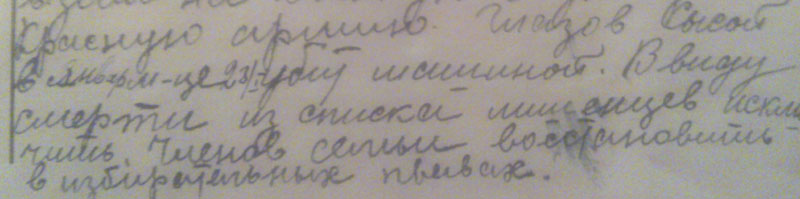 Красную армию. Глазов Сысой
в январ м-це 23/I убит машиной. Ввиду
смерти из списка лишенцев исклю
чить членов семьи восстановить
в избирательных правах.